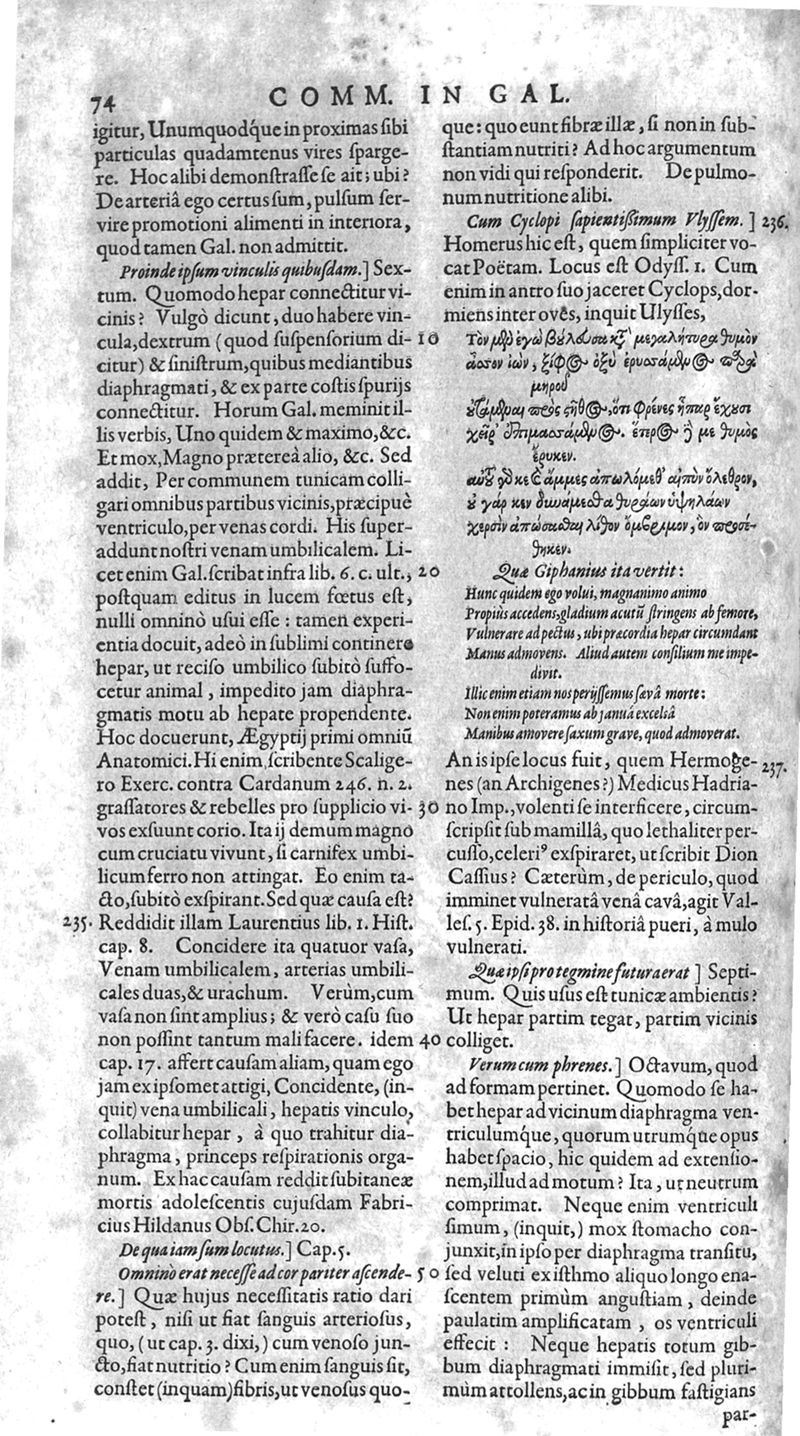 74 COMM. IN GAL.
igitur, Unumquodq́ue in proximas ſibi
particulas quadamtenus vires ſparge-
re. Hoc alibi demonſtraſſe ſe ait; ubi?
De arteriâ ego certus ſum, pulſum ſer-
vire promotioni alimenti in interiora,
quod tamen Gal. non admittit.
Proinde ipſum vinculis quibuſdam.] Sex-
tum. Quomodo hepar connectitur vi-
cinis? Vulgò dicunt, duo habere vin-
cula, dextrum (quod ſuſpenſorium di- 10
citur) & ſiniſtrum, quibus mediantibus
diaphragmati, & ex parte coſtis ſpurijs
connectitur. Horum Gal. meminit il-
lis verbis, Uno quidem & maximo, &c.
Et mox, Magno prætereà alio, &c. Sed
addit, Per communem tunicam colli-
gari omnibus partibus vicinis, præcipuè
ventriculo, per venas cordi. His ſuper-
addunt noſtri venam umbilicalem. Li-
cet enim Gal. ſcribat infra lib. 6. c. ult., 20
poſtquam editus in lucem fœtus eſt,
nulli omninò uſui eſſe : tamen experi-
entia docuit, adeò in ſublimi continere
hepar, ut reciſo umbilico ſubitò ſuffo-
cetur animal, impedito jam diaphra-
gmatis motu ab hepate propendente.
Hoc docuerunt, Ægyptij primi omniũ
Anatomici. Hi enim, ſcribente Scalige-
ro Exerc. contra Cardanum 246. n. 2.
graſſatores & rebelles pro ſupplicio vi- 30
vos exſuunt corio. Ita ij demum magno
cum cruciatu vivunt, ſi carnifex umbi-
licum ferro non attingat. Eo enim ta-
cto, ſubitò exſpirant. Sed quæ cauſa eſt?
235. Reddidit illam Laurentius lib. 1. Hiſt.
cap. 8. Concidere ita quatuor vaſa,
Venam umbilicalem, arterias umbili-
cales duas, & urachum. Verùm, cum
vaſa non ſint amplius; & verò caſu ſuo
non poſſint tantum mali facere. idem 40
cap. 17. affert cauſam aliam, quam ego
jam ex ipſomet attigi, Concidente, (in-
quit) vena umbilicali, hepatis vinculo,
collabitur hepar, à quo trahitur dia-
phragma, princeps reſpirationis orga-
num. Ex hac cauſam reddit ſubitaneæ
mortis adoleſcentis cujuſdam Fabri-
cius Hildanus Obſ. Chir. 20.
De qua iam ſum locutus.] Cap. 5.
Omninò erat neceſſe ad cor pariter aſcende- 50
re.] Quæ hujus neceſſitatis ratio dari
poteſt, niſi ut fiat ſanguis arterioſus,
quo, (ut cap. 3. dixi,) cum venoſo jun-
cto, fiat nutritio? Cum enim ſanguis ſit,
conſtet (inquam) fibris, ut venoſus quo-
que: quo eunt fibræ illæ, ſi non in ſub-
ſtantiam nutriti? Ad hoc argumentum
non vidi qui reſponderit. De pulmo-
num nutritione alibi.
Cum Cyclopi ſapientißimum Vlyſſem.] 236.
Homerus hic eſt, quem ſimpliciter vo-
cat Poëtam. Locus eſt Odyſſ. 1. Cum
enim in antro ſuo jaceret Cyclops, dor-
miens inter oves, inquit Ulyſſes,
Τὸν μὲν ἐγὼ βούλευσα κατ̓ μεγαλήτορα θυμὸν
ἆσσον ἰὼν, ξίφος ὀξὺ ἐρυσσάμενος παρὰ
μηροῦ
οὐτάμεναι πρὸς στῆθος, ὅτι φρένες ἧπαρ ἔχουσι
χεῖρ' ἐπιμασσάμενος. ἕτερος δέ με θυμὸς
ἔρυκεν.
αὐτοῦ γὰρ κε καὶ ἄμμες ἀπωλόμεθ' αἰπὺν ὄλεθρον,
οὐ γάρ κεν δυνάμεσθα θυράων ὑψηλάων
χερσὶν ἀπώσασθαι λίθον ὄμβριμον, ὃν προσέ-
θηκεν.
Quæ Giphanius ita vertit:
Hunc quidem ego volui, magnanimo animo
Propiùs accedens, gladium acutũ ſtringens ab femore,
Vulnerare ad pectus, ubi præcordia hepar circumdant
Manus admovens. Aliud autem conſilium me impe-
divit.
Illic enim etiam nos perijſſemus ſævâ morte:
Non enim poteramus ab januâ excelsâ
Manibus amovere ſaxum grave, quod admoverat.
An is ipſe locus fuit, quem Hermoge- 237.
nes (an Archigenes?) Medicus Hadria-
no Imp., volenti ſe interficere, circum-
ſcripſit ſub mamillâ, quo lethaliter per-
cuſſo, celeriꝰ exſpiraret, ut ſcribit Dion
Caſſius? Cæterùm, de periculo, quod
imminet vulneratâ venâ cavâ, agit Val-
leſ. 5. Epid. 38. in hiſtoriâ pueri, à mulo
vulnerati.
Quæ ipſi pro tegmine futura erat] Septi-
mum. Quis uſus eſt tunicæ ambientis?
Ut hepar partim tegat, partim vicinis
colliget.
Verum cum phrenes.] Octavum, quod
ad formam pertinet. Quomodo ſe ha-
bet hepar ad vicinum diaphragma ven-
triculumq́ue, quorum utrumq́ue opus
habet ſpacio, hic quidem ad extenſio-
nem, illud ad motum? Ita, ut neutrum
comprimat. Neque enim ventriculi
ſimum, (inquit,) mox ſtomacho con-
junxit, in ipſo per diaphragma tranſitu,
ſed veluti ex iſthmo aliquo longo ena-
ſcentem primùm anguſtiam, deinde
paulatim amplificatam, os ventriculi
effecit : Neque hepatis totum gib-
bum diaphragmati immiſit, ſed pluri-
mùm attollens, ac in gibbum faſtigians
par-